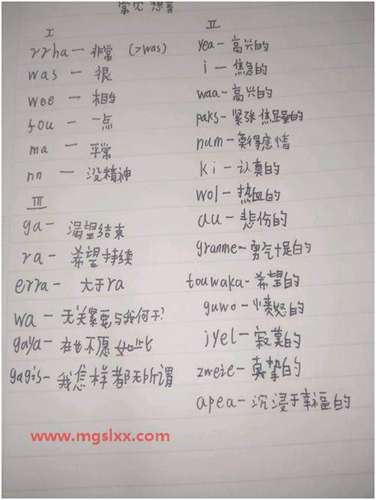 常见
I
rrha — 非常 (>was)
was — 很
wee — 相当
fou — 一点
ma — 平常
nn — 没精神
III
ga - 渴望结束
ra - 希望持续
erra - 大于ra
wa - 无关紧要与我何干?
gaya - 再也不愿如此
gagis - 我怎样都无所谓
II
yea - 高兴的
i - 焦急的
waa - 高兴的
paks - 紧张焦虑的
num - 莫得感情
ki - 认真的
wol - 热血的
au - 悲伤的
granme - 勇气十足的
touwaka - 希望的
guwo - 愤怒的
iyel - 寂寞的
zweie - 真挚的
apea - 沉浸于幸福的
www.mgslxx.com